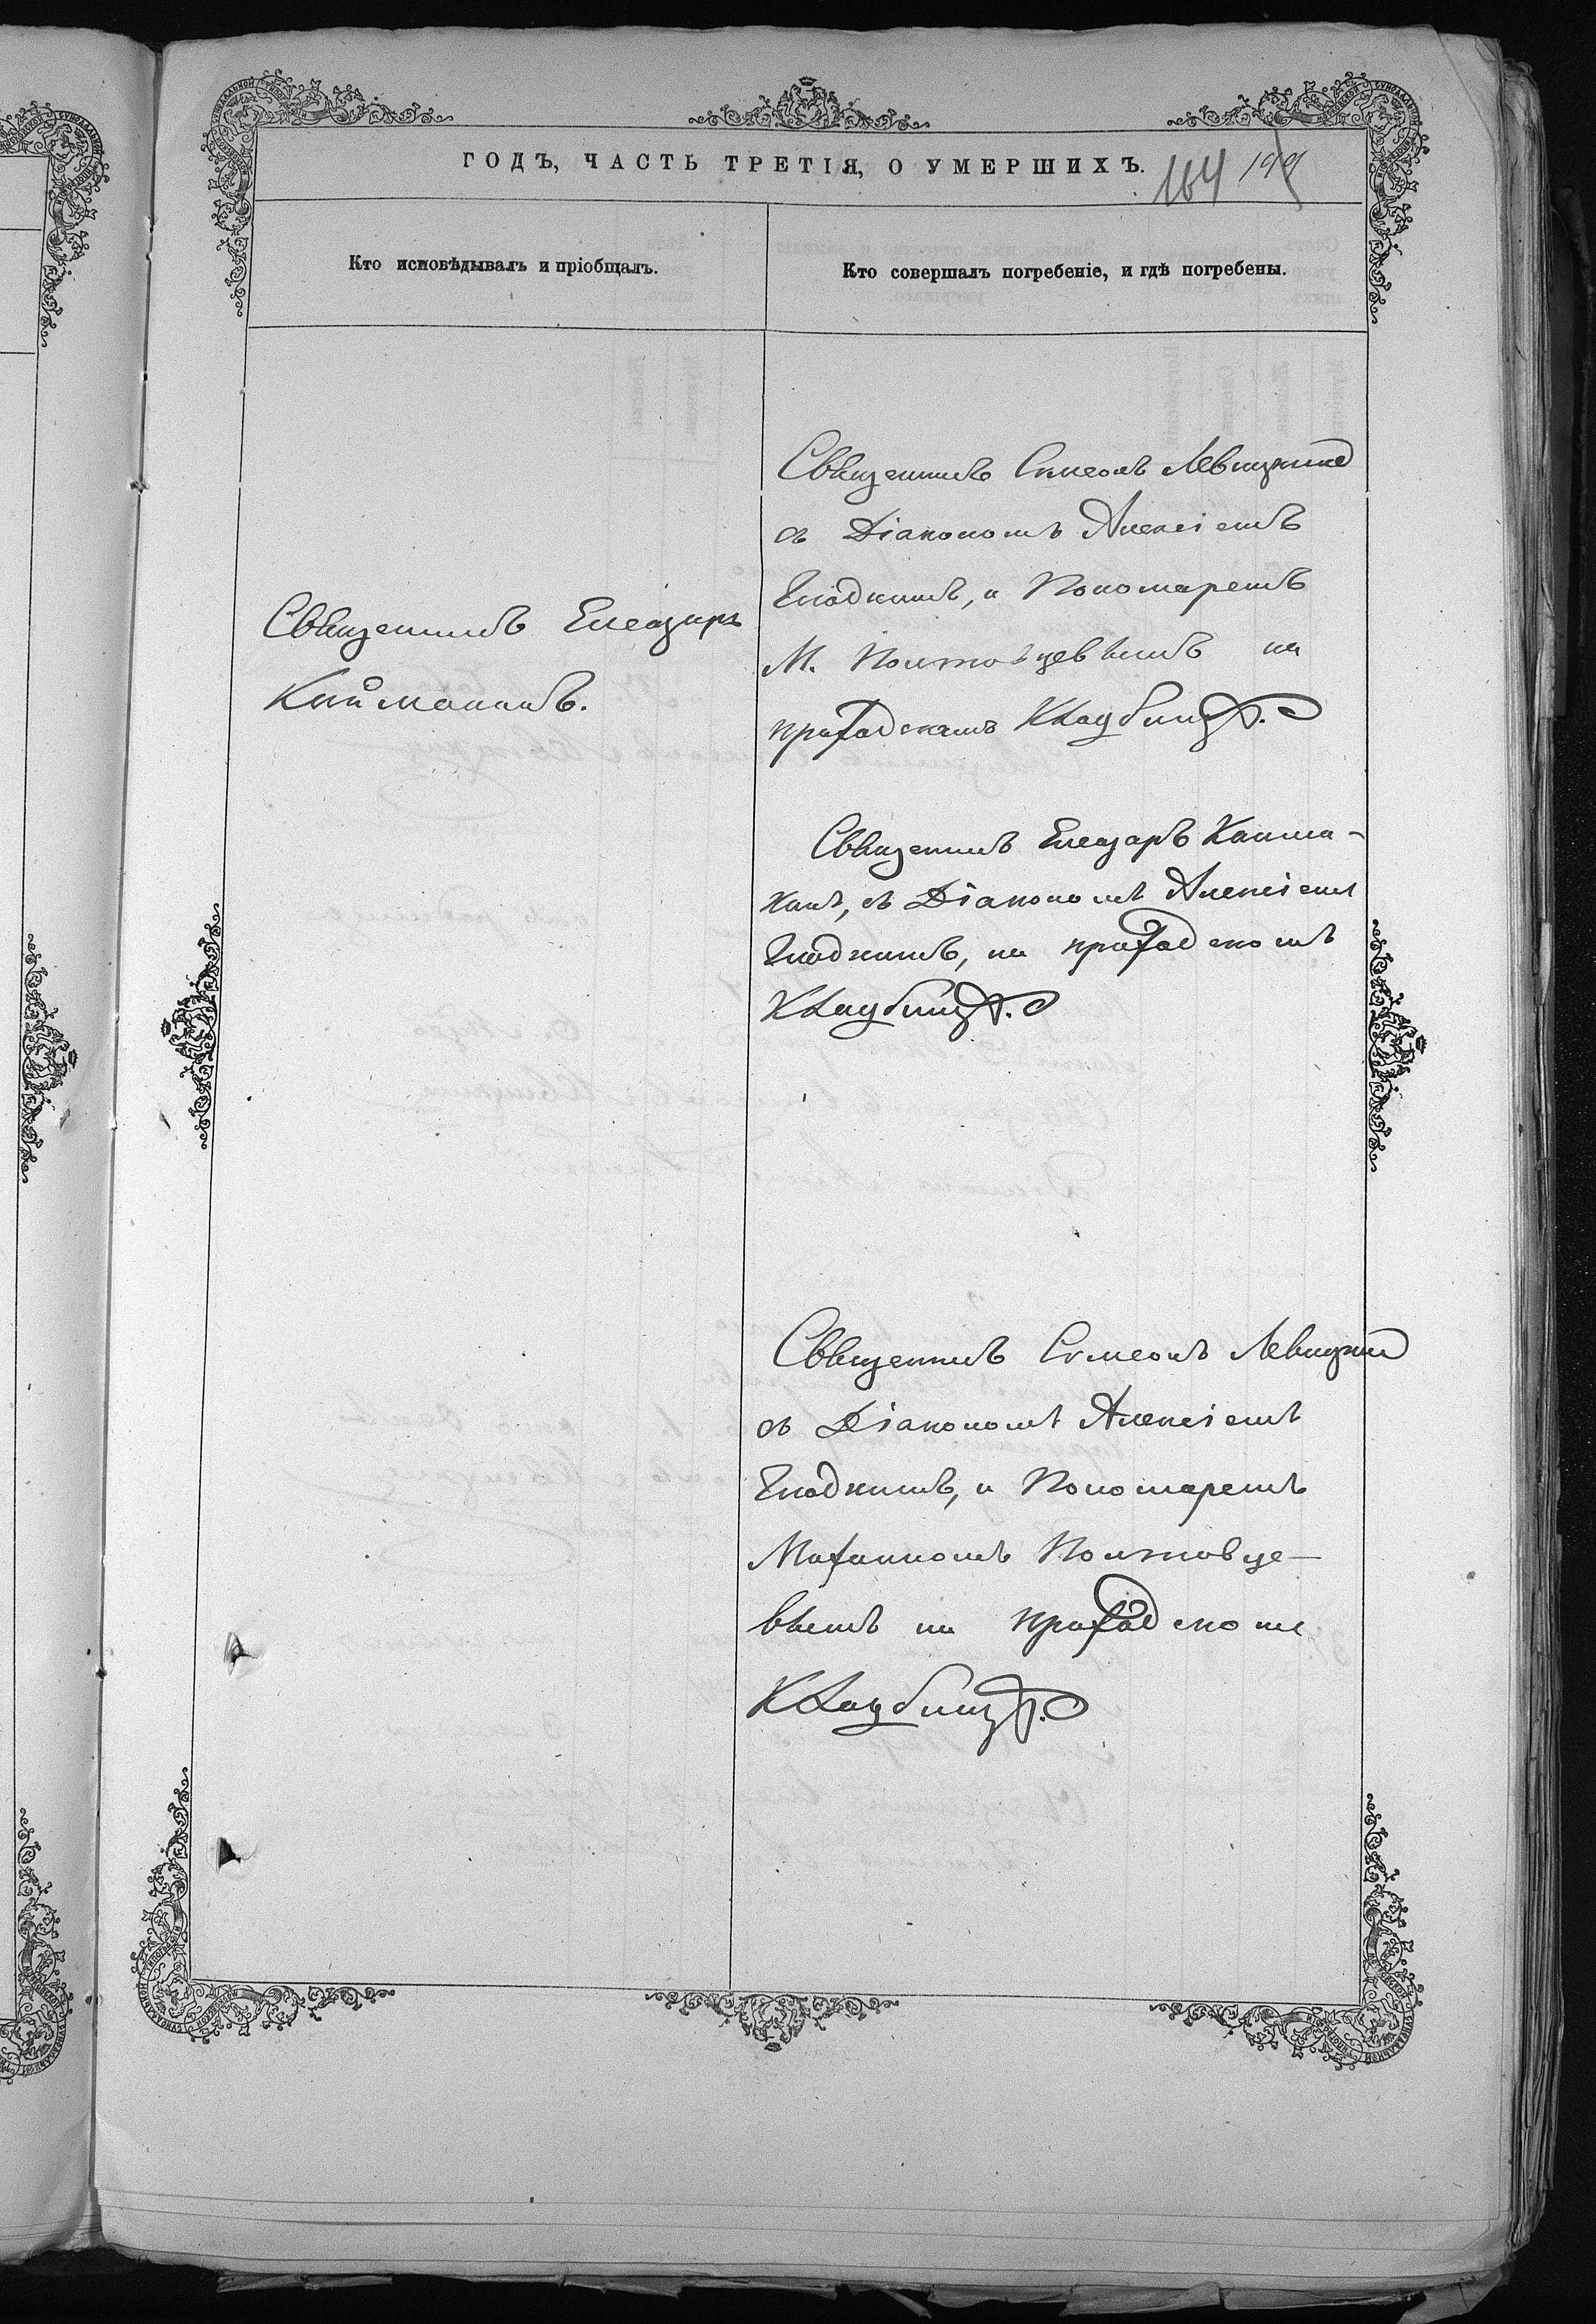 ГОДЪ, ЧАСТЬ ТРЕТІЯ, О УМЕРШИХЪ.
164 199
Кто исповѣдывалъ и пріобщалъ.
Кто совершалъ погребеніе, и гдѣ погребены.
Священникъ Симеонъ Левицкій
съ Діакономъ Алексіемъ
Гладкимъ, и Пономаремъ
М. Полтовцевымъ на
приходскомъ Кладбищѣ.
Священникъ Елеазаръ
Каймананъ.
Священникъ Елеазаръ Кайма-
канъ, съ Діакономъ Алексіемъ
Гладкимъ, на приходскомъ
Кладбищѣ.
Священникъ Симеонъ Левицкій
съ Діакономъ Алексіемъ
Гладкимъ, и Пономаремъ
Полтовце-
вымъ на приходскомъ
Кладбищѣ.